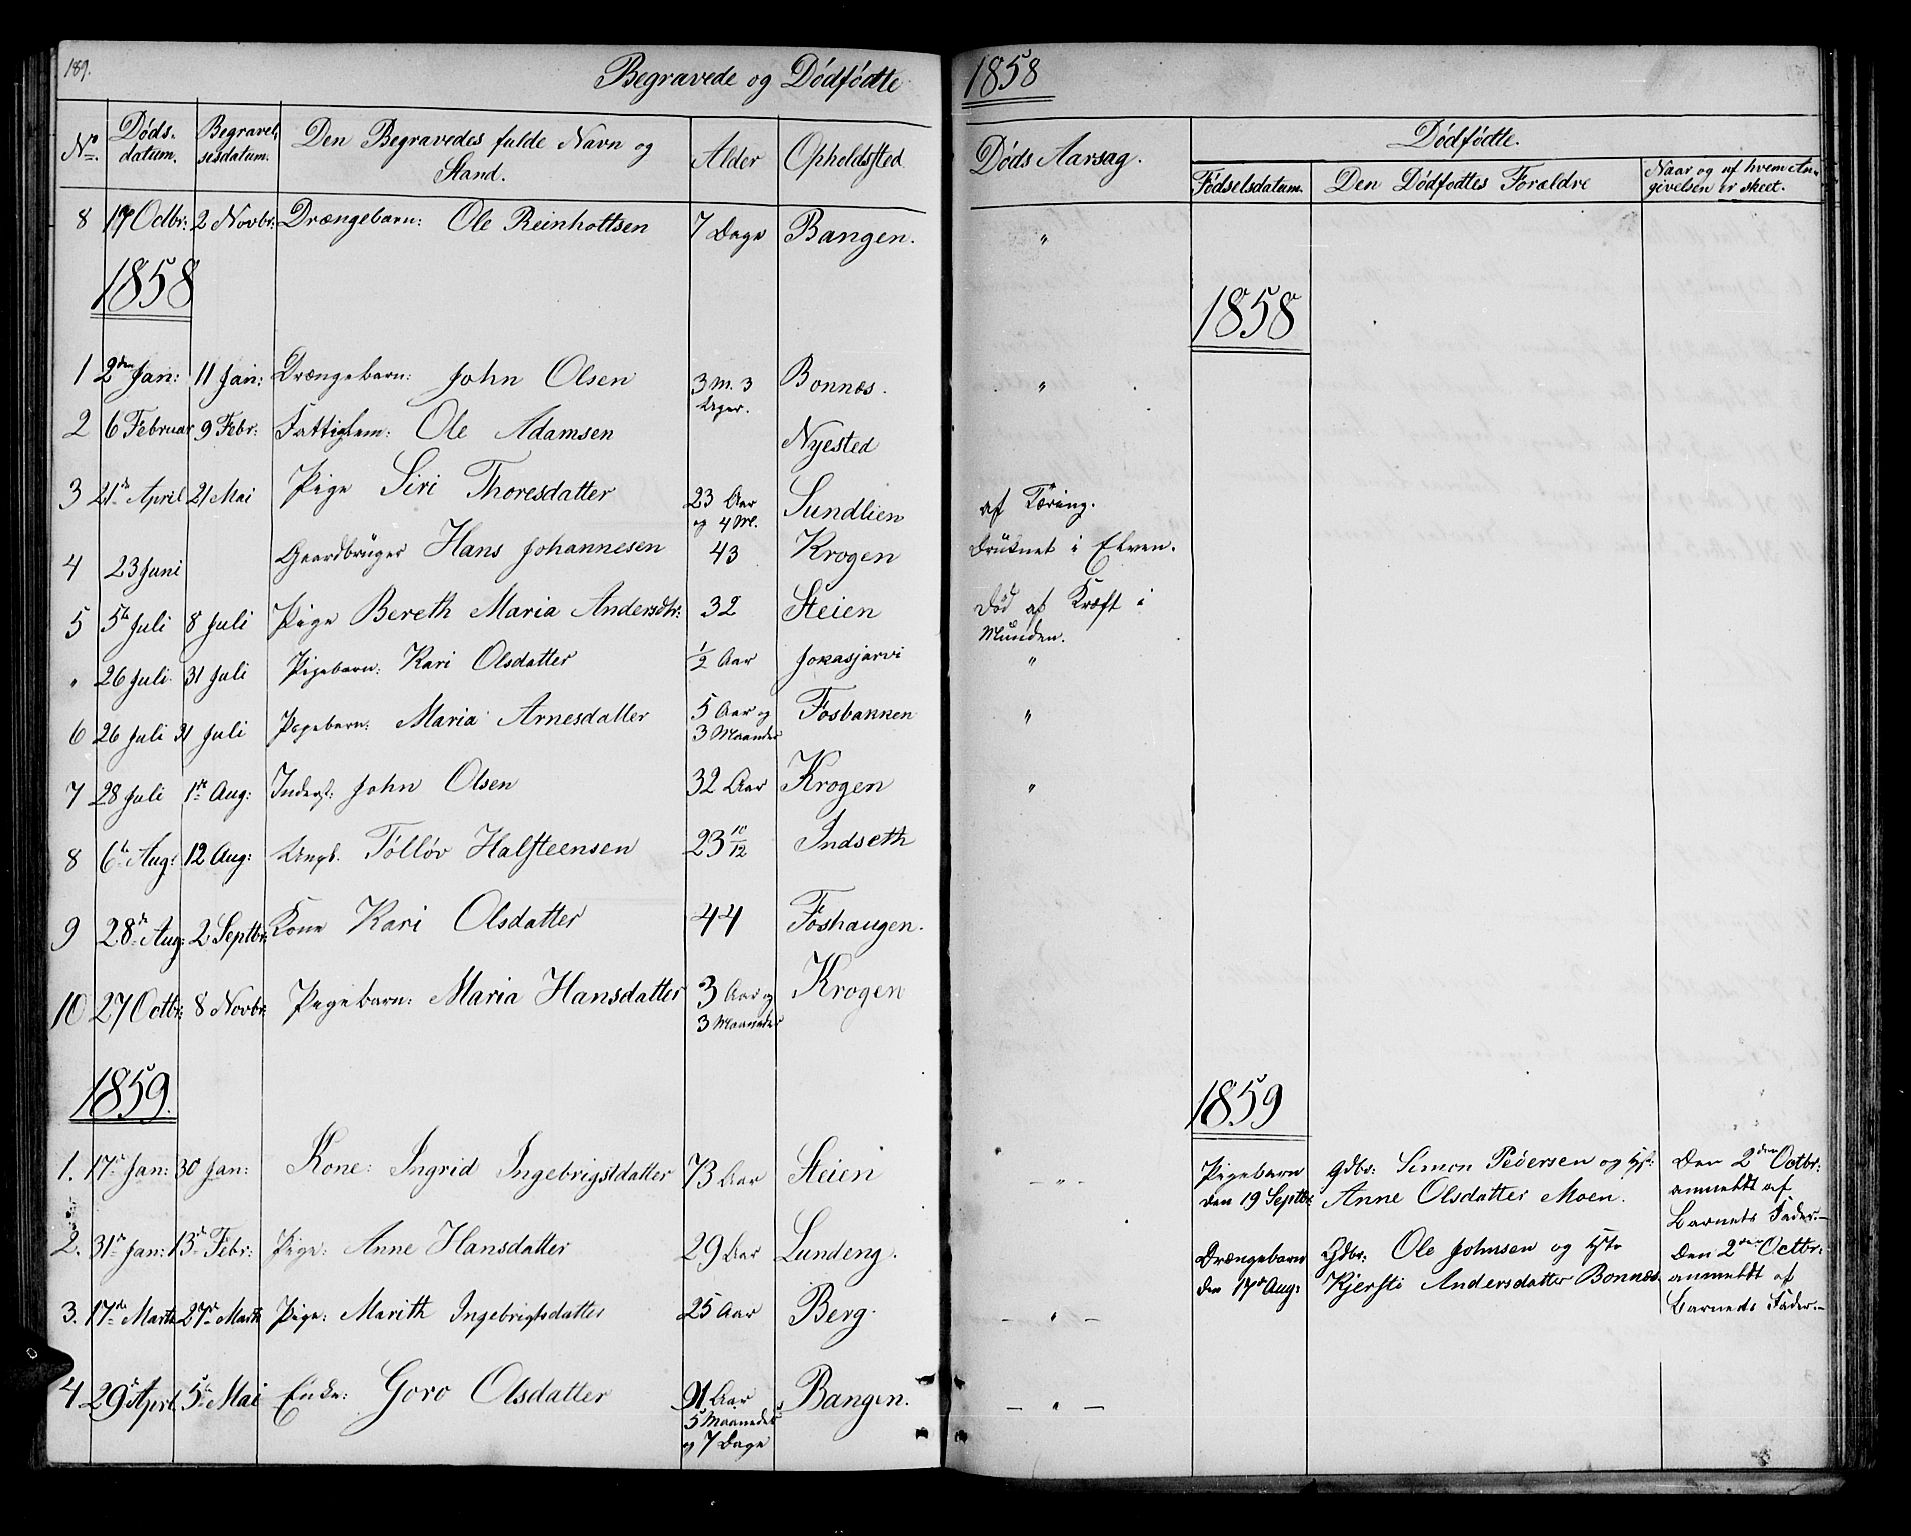 189.
Begravede og Dödfödte 1858
No. Döds. datum. Begravel, sesdatum. Den Begravedes fulde Navn og Stand. Alder Opholdsted Döds Aarsag. Dödfödte.
Födselsdatum. Den Dödfödtes Forældre Naar og af hvem An, givelsen er skeet.
8 17 Octbr: 2 Novbr: Drængebarn: Ole Reinholtsen 7 Dage Bangen. "
1858 1858
1 2den Jan: 11 Jan: Drængebarn: John Olsen 3 M. 3 Dager. Bonnæs. "
2 6 Februar 9 Febr: Fattiglem: Ole Adamsen Nyested
3 21de April 21 Mai Pige Siri Thoresdatter 23 Aar og 4 M. Sundlien af Tæring.
4 23 Juni Gaardbrüger Hans Johannesen 43 Krogen Drüknet i Elven.
5 5te Juli 8 Juli Pige Bereth Maria Andersdtr: 32 Steien Död af Kræft i Munden.
" 26 Juli 31 Juli Pigebarn: Kari Olsdatter 1/2 Aar Jokasjarvi "
6 26 Juli 31 Juli Pigebarn: Maria Arnesdatter 5 Aar og 3 Maaneder Fosbakken "
7 28 Juli 1ste Aug: Inderst: John Olsen 32 Aar Krogen "
8 6te Aug: 12 Aug: Ungk. Tölløv Halsteensen 23 10/12 Indseth
9 28de Aug: 2 Septbr: Kone Kari Olsdatter 44 Foshaugen.
10 27 Octbr: 8 Novbr: Pigebarn: Maria Hansdatter 3 Aar og 3 Maaneder Krogen
1859. 1859
1. 17de Jan: 30 Jan: Kone: Ingrid Ingebrigtsdatter 73 Aar Steien - " -
Pigebarn den 19 Septbr: Gdbr: Simon Pedersen og Hst: Anne Olsdatter Moen. Den 2den Octbr: anmeldt af Barnets Fader.-
2. 31te Jan: 13de Febr: Pige: Anne Hansdatter 29 Aar Lundeng.
Drængebarn den 17de Aug: Gdbr: Ole Johnsen og Hstr Kjersti Andersdatter Bonnæs. Den 2den Octbr: anmeldt af Barnets Fader.-
3. 17de Marts 27de Marts Pige: Marith Ingebrigtsdatter 25 Aar Berg. - " -
4 29de April 5te Mai Enke: Goro Olsdatter 91 Aar 5 Maaneder og 7 Dage Bangen. - " -